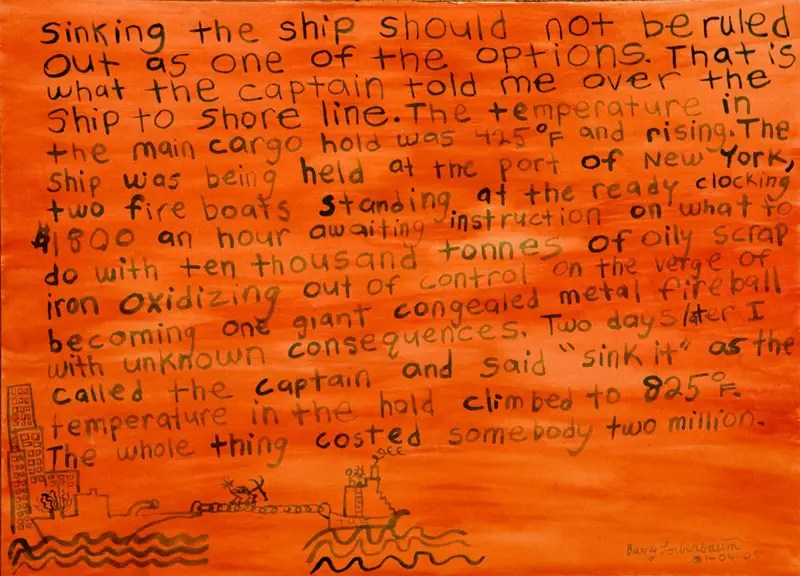 Sinking the ship should not be ruled
out as one of the options. That is
what the captain told me over the
ship to shore line. The temperature in
the main cargo hold was 425°F and rising. The
ship was being held at the port of New York,
two fire boats standing at the ready clocking
$1800 an hour awaiting instruction on what to
do with ten thousand tonnes of oily scrap
iron oxidizing out of control on the verge of
becoming one giant congealed metal fireball
with unknown consequences. Two days later I
called the captain and said "sink it" as the
temperature in the hold climbed to 825°F.
The whole thing costed somebody two million.
Lorberbaum